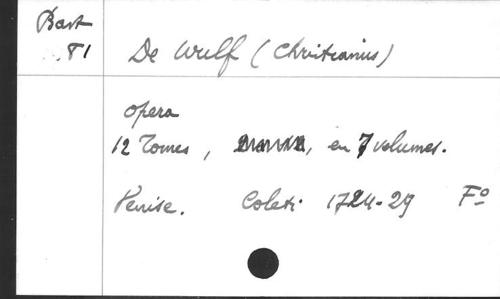 Bast
.81
De Wulf (Chritianus)
Opera
12 Tomes, en 7 volumes.
Venise. Coleti 1724-29 Fo